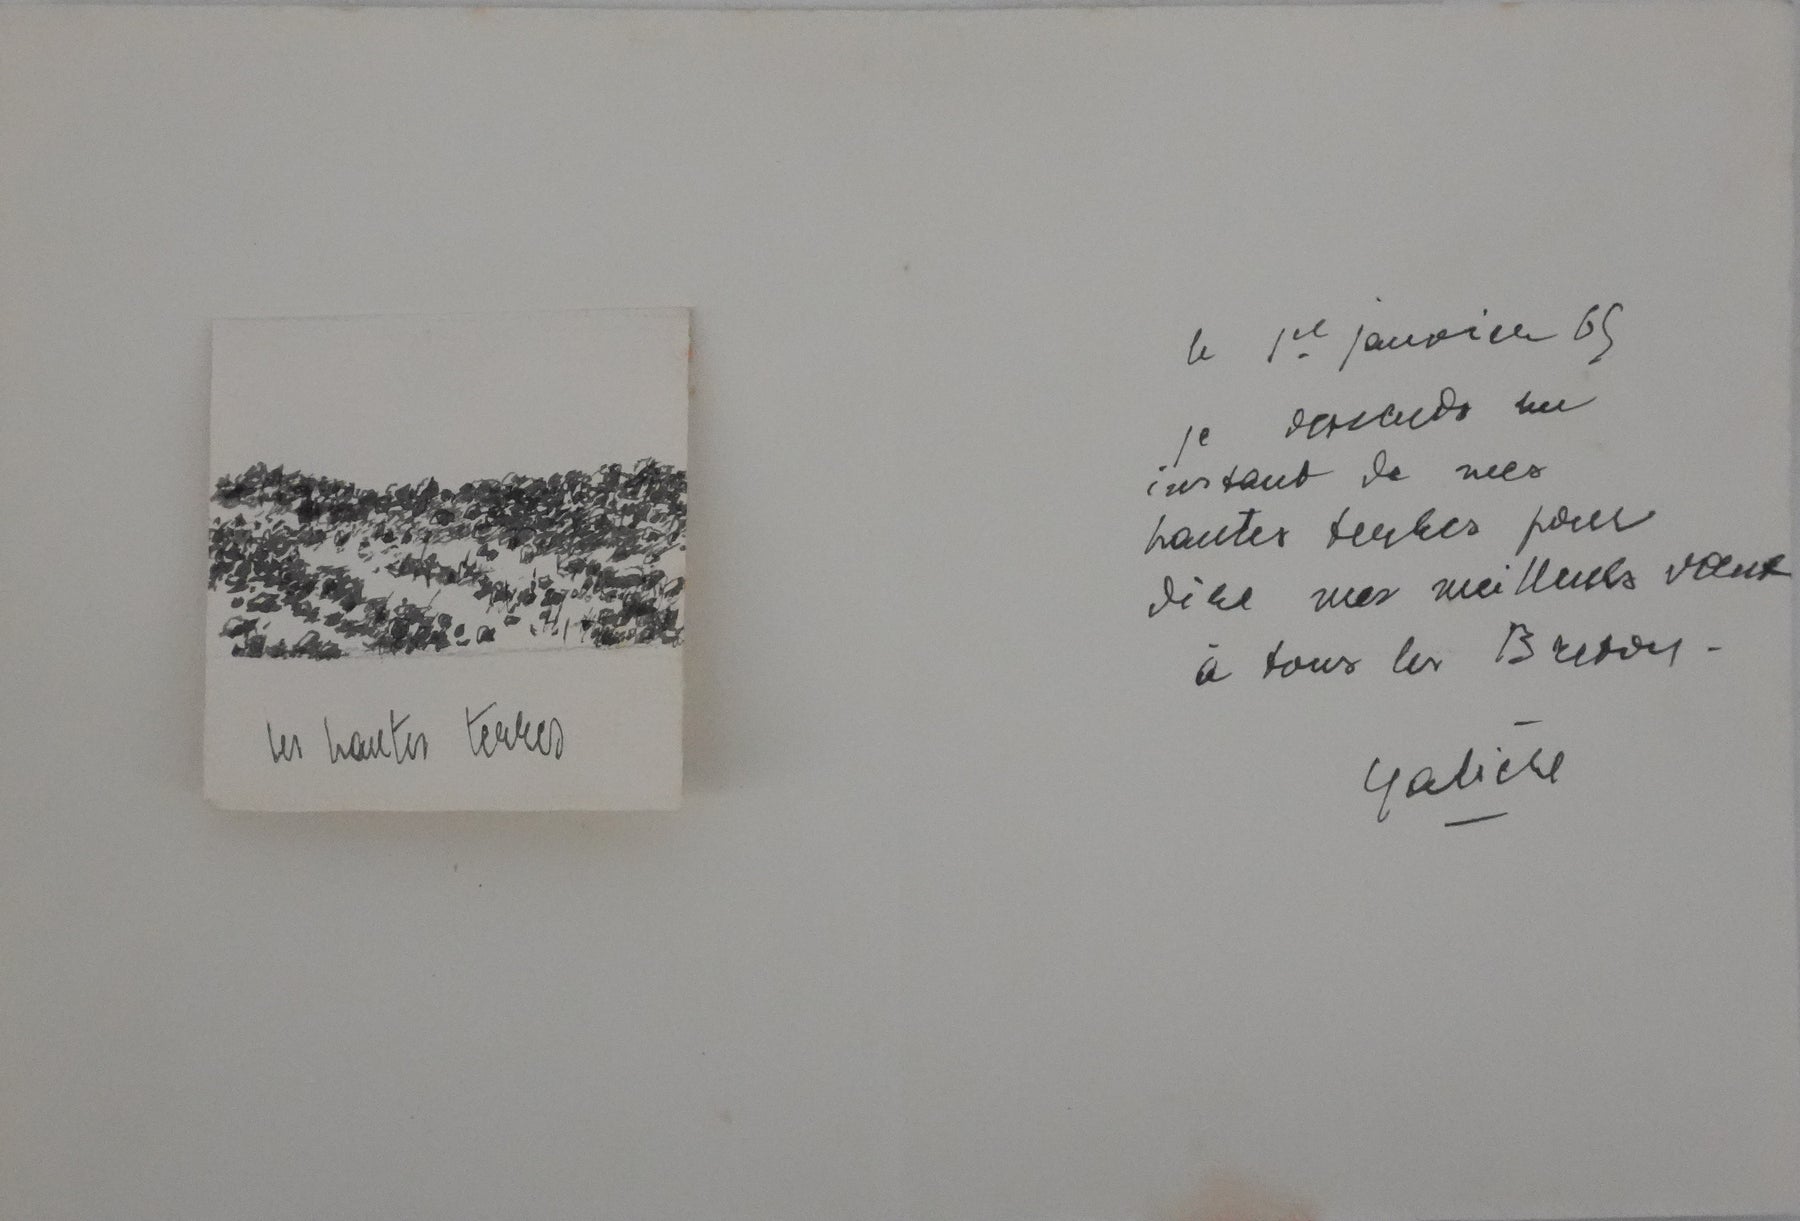 les hautes terres
le 1er janvier 65
je descends un
instant de mes
hautes terres pour
dire mes meilleurs vœux
à tous les Breton -